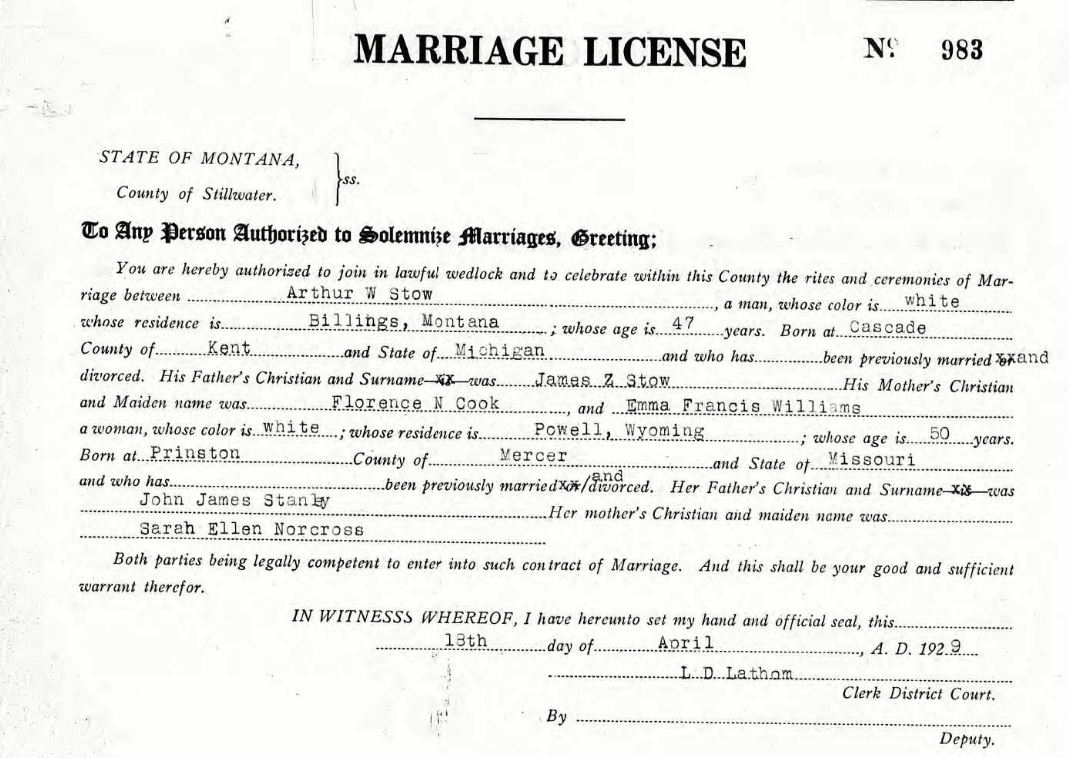 MARRIAGE LICENSE Nº 983
STATE OF MONTANA,
County of Stillwater. } ss.
To Any Person Authorized to Solemnize Marriages, Greeting;
You are hereby authorized to join in lawful wedlock and to celebrate within this County the rites and ceremonies of Mar-
riage between Arthur W Stow, a man, whose color is white
whose residence is Billings, Montana; whose age is 47 years. Born at Cascade
County of Kent and State of Michigan and who has been previously married or and
divorced. His Father's Christian and Surname was James Z Stow His Mother's Christian
and Maiden name was Florence N Cook, and Emma Francis Williams
a woman, whose color is white; whose residence is Powell, Wyoming; whose age is 50 years.
Born at Prinston County of Mercer and State of Missouri
and who has been previously married or/and divorced. Her Father's Christian and Surname was
John James Stanly Her mother's Christian and maiden name was
Sarah Ellen Norcross
Both parties being legally competent to enter into such contract of Marriage. And this shall be your good and sufficient
warrant therefor.
IN WITNESS WHEREOF, I have hereunto set my hand and official seal, this
18th day of April, A. D. 1929
L D Lathom
Clerk District Court.
By
Deputy.